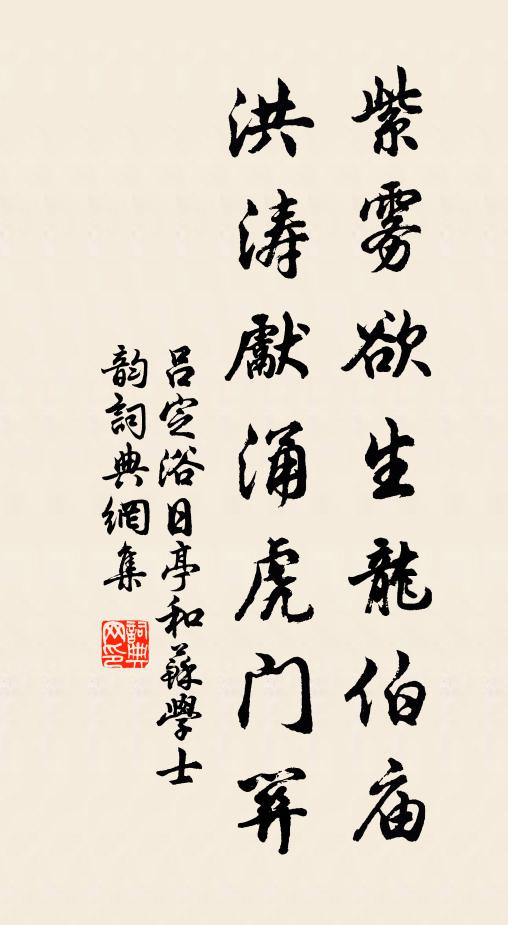 紫雾欲生龍伯庙
洪涛獻涌虎门關
吕定浴日亭和蘇學士
韵詞典網集
詞典网印